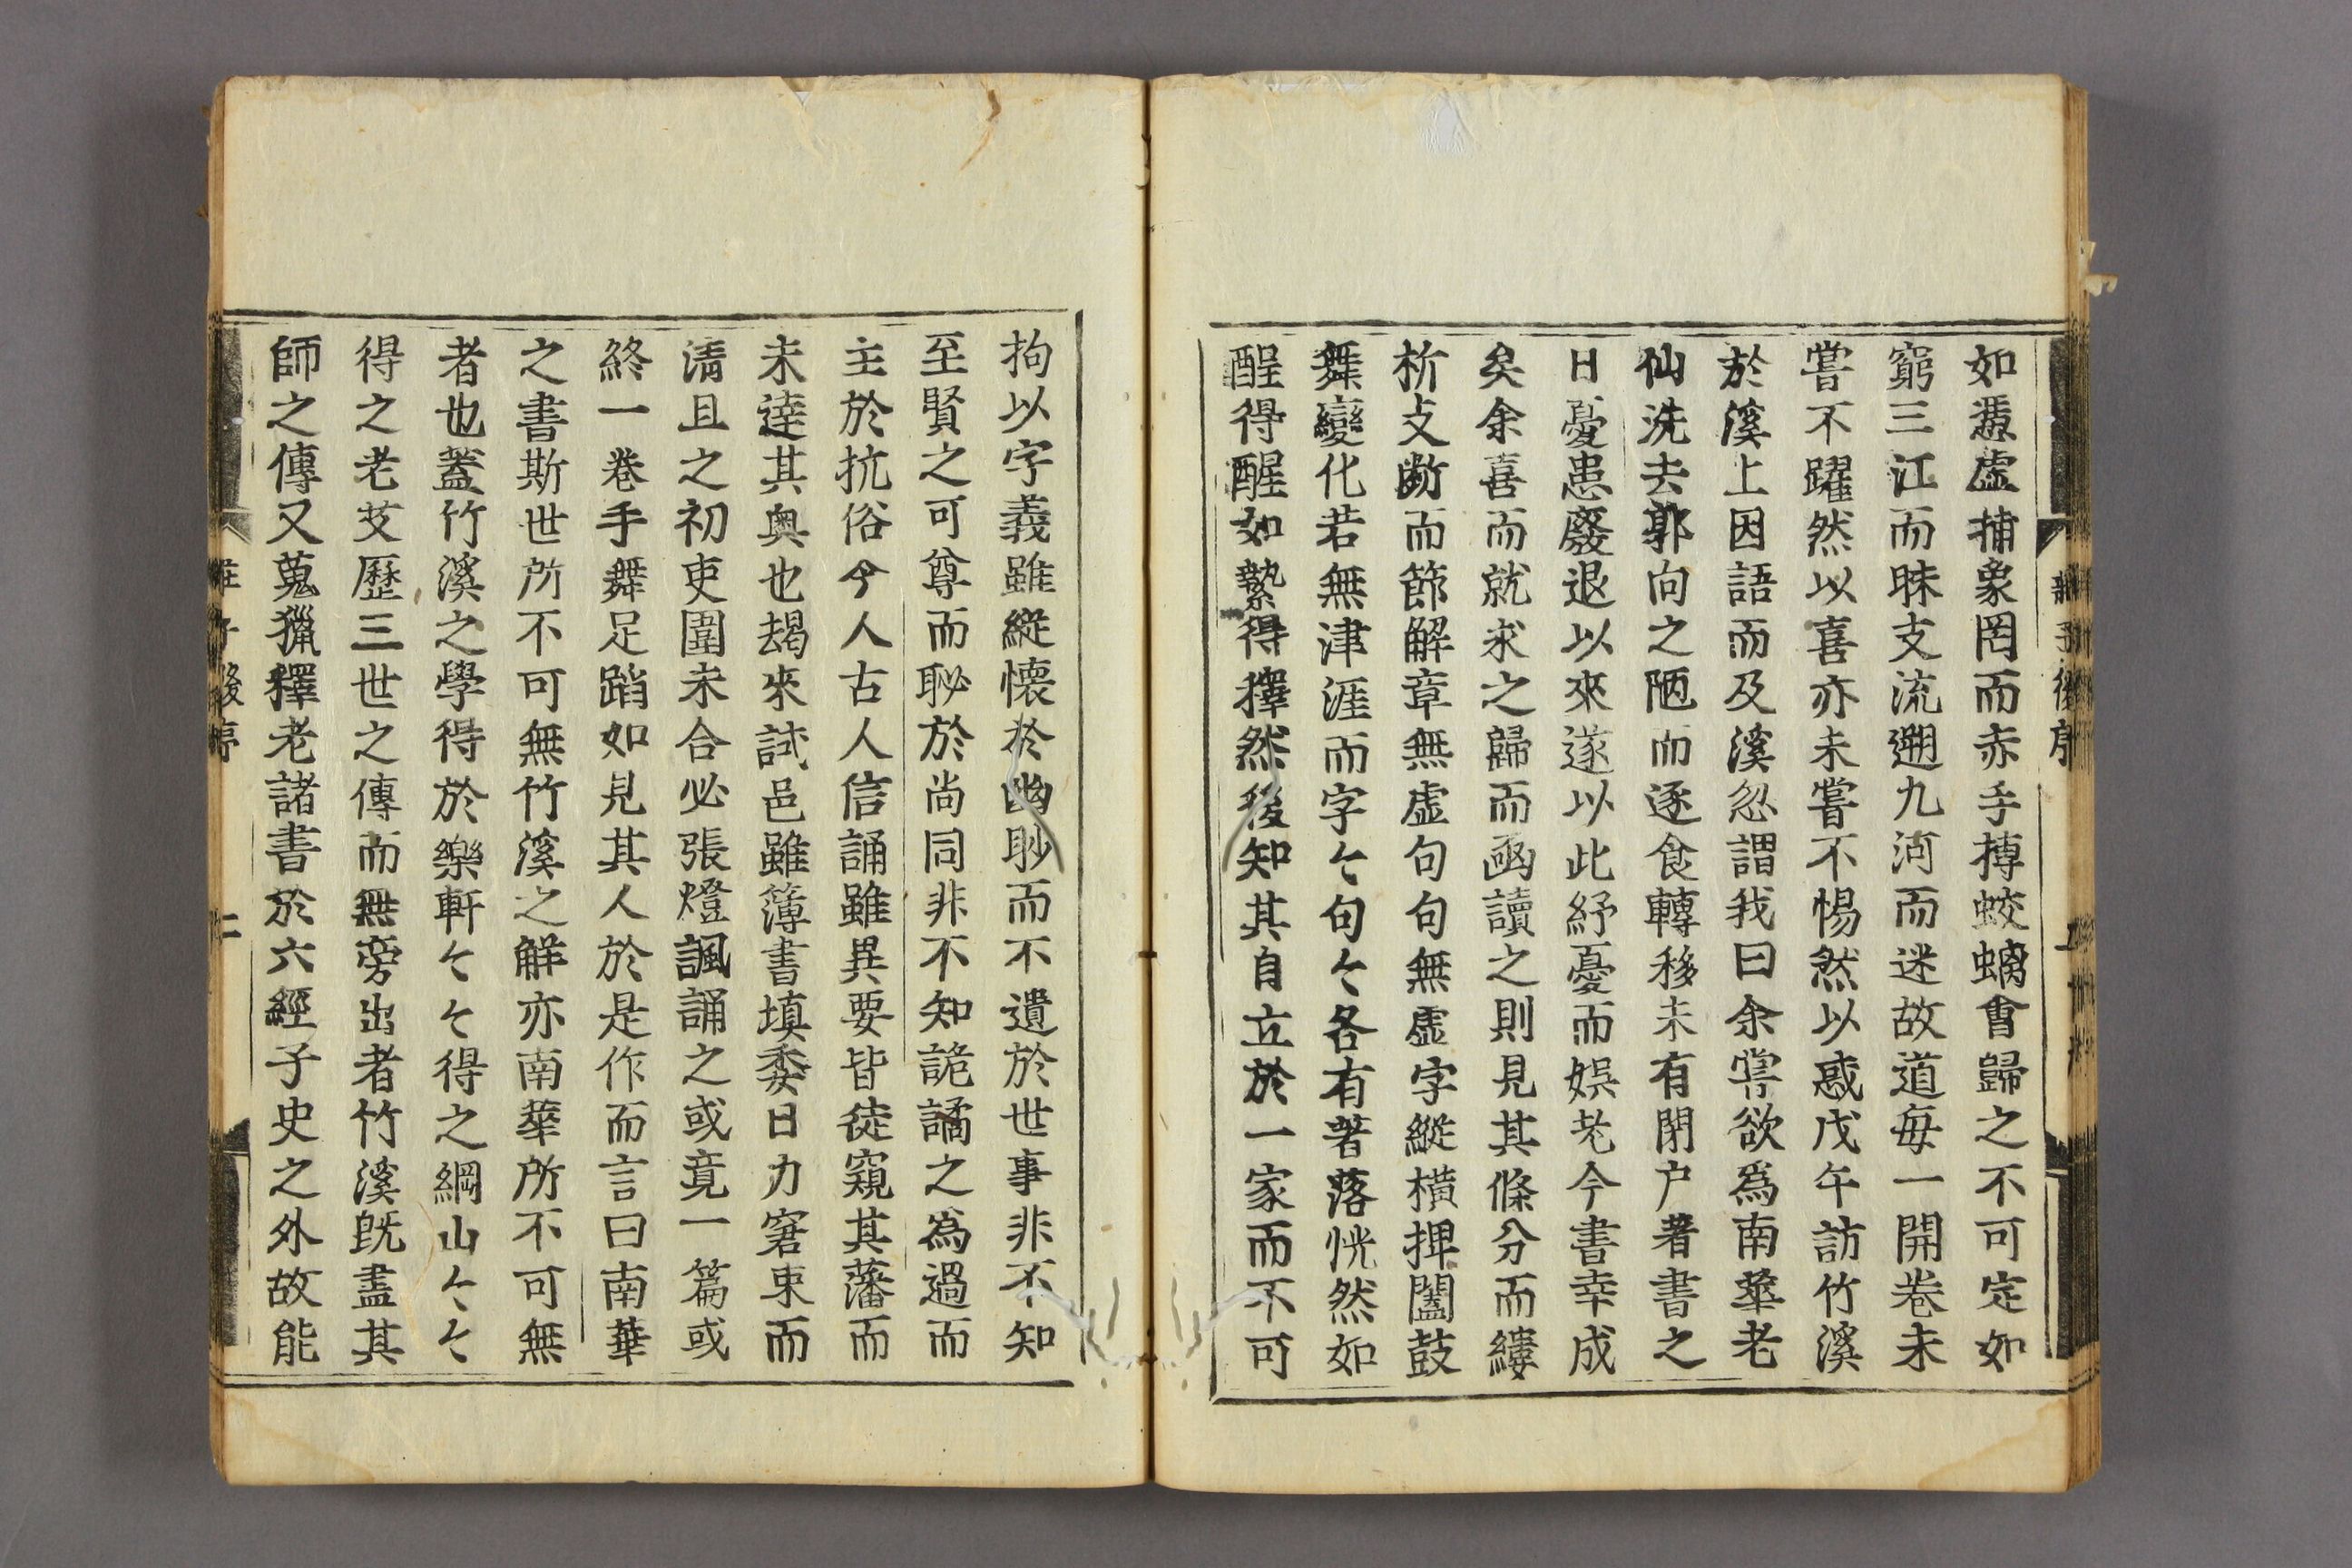 如慿虛捕象罔而赤手摶蛟螭㑹歸之不可定如
窮三江而昧支流遡九河而迷故道每一開卷未
嘗不躍然以喜亦未嘗不惕然以惑戊午訪竹溪
於溪上因語而及溪忽謂我曰余嘗欲爲南華老
仙洗去郭向之陋而逐食轉移未有閉户著書之
日憂患廢退以來遂以此紓憂而娛老今書幸成
矣余喜而就求之歸而亟讀之則見其條分而縷
析攴斷而節解章無虚句句無虛字縱橫捭闔鼓
舞變化若無津涯而字〻句〻各有著落恍然如
酲得醒如縶得釋然後知其自立於一家而不可
拘以字義雖縱懷於幽眇而不遺於世事非不知
至賢之可尊而恥於尚同非不知詭譎之爲過而
主於抗俗今人古人信誦雖異要皆徒窺其藩而
未逹其奥也朅來試邑雖簿書填委日力窘束而
淸且之初吏圍未合必張燈諷誦之或竟一篇或
終一卷手舞足蹈如見其人於是作而言曰南華
之書斯世所不可無竹溪之解亦南華所不可無
者也蓋竹溪之學得於樂軒〻〻得之綱山〻〻
得之老艾歷三世之傳而無旁出者竹溪旣盡其
師之傳又蒐獵釋老諸書於六經子史之外故能
莊子後序
二